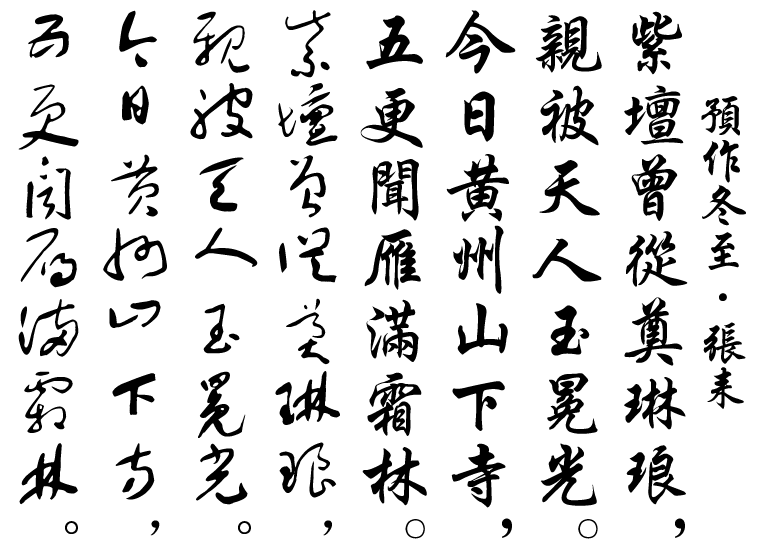 預作冬至·張耒
紫壇曾從奠琳琅，
親被天人玉冕光。
今日黃州山下寺，
五更聞雁滿霜林。
紫壇曾從奠琳琅，
親被天人玉冕光。
今日黃州山下寺，
五更聞雁滿霜林。